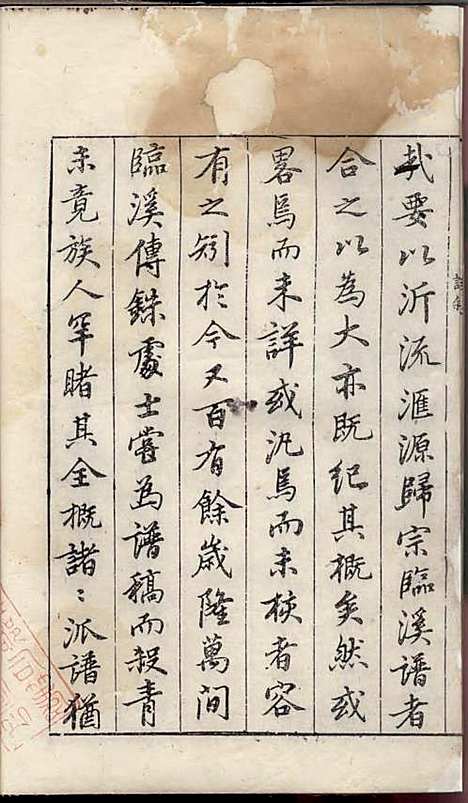 哉要以沂流滙源歸宗臨溪譜者
合之以為大亦既紀其概矣然或
畧焉而未詳或汎焉而未核者容
有之矧於今又百有餘歲隆萬間
臨溪傳銖處士嘗為譜稿而殺青
未竟族人罕睹其全概諸〻派譜猶